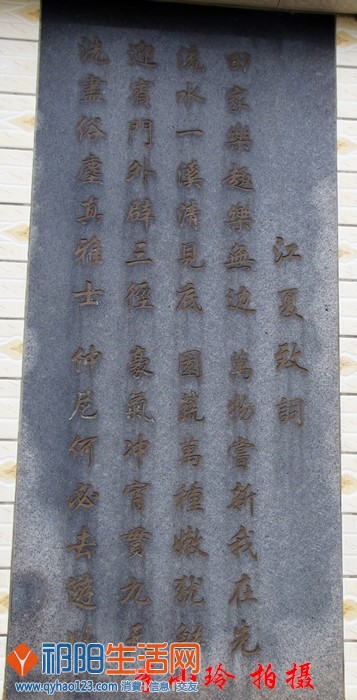 江夏致詞
田家樂趣樂無边 萬物嘗新我在先
流水一溪清見底 園蔬萬種嫩
迎賓門外辟三徑 豪氣冲宵貫九
洗盡俗塵真雅士 仲尼何必去遊
祁阳生活网
www.qyhao123.com 消費 信息 交友
小玲 拍摄